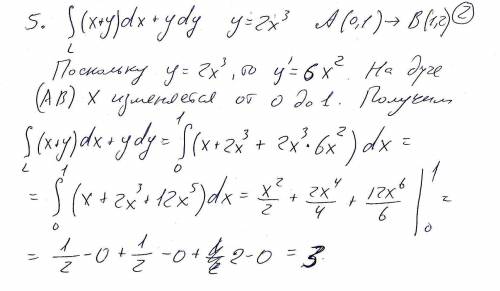 5. ∫_L (x+y)dx + ydy   y=2x³   A(0,1) → B(1,2) ②
Поскольку y = 2x³, то y' = 6x². На дуге
(AB) X изменяется от 0 до 1. Получим
∫_L (x+y)dx + ydy = ∫₀¹ (x+2x³ + 2x³·6x²) dx =
= ∫₀¹ (x + 2x³ + 12x⁵)dx = x²/2 + 2x⁴/4 + 12x⁶/6 |₀¹ =
= 1/2 - 0 + 1/2 - 0 + 2 - 0 = 3